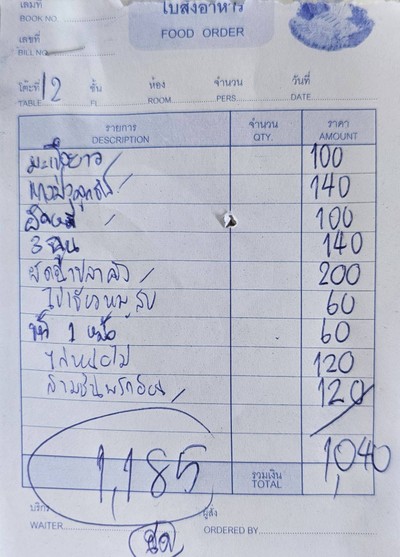 เล่มที่
BOOK NO.
ใบสั่งอาหาร
FOOD ORDER
เลขที่
BILL NO.
โต๊ะที่ 12 ชั้น ห้อง จำนวน วันที่
TABLE FL. ROOM PERS. DATE
รายการ จำนวน ราคา
DESCRIPTION QTY. AMOUNT
มะเขือยาว 100
140
ผัดหมี่ 100
3 140
200
ไข่เจียวหมูสับ 60
1 หม้อ 60
ไส้หน่อไม้ 120
สามชั้นพริกอ่อน 120
1,040
1,185
รวมเงิน
TOTAL
บริกร ผู้สั่ง
WAITER ORDERED BY